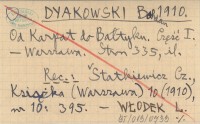 DYAKOWSKI B. 1910.
Od Karpat do Bałtyku. Część I.
– Warszawa. Stron 335, il.
Rec.: Statkiewicz Cz.,
Książka (Warszawa) 10 (1910),
nr 10: 395. – WŁODEK L.